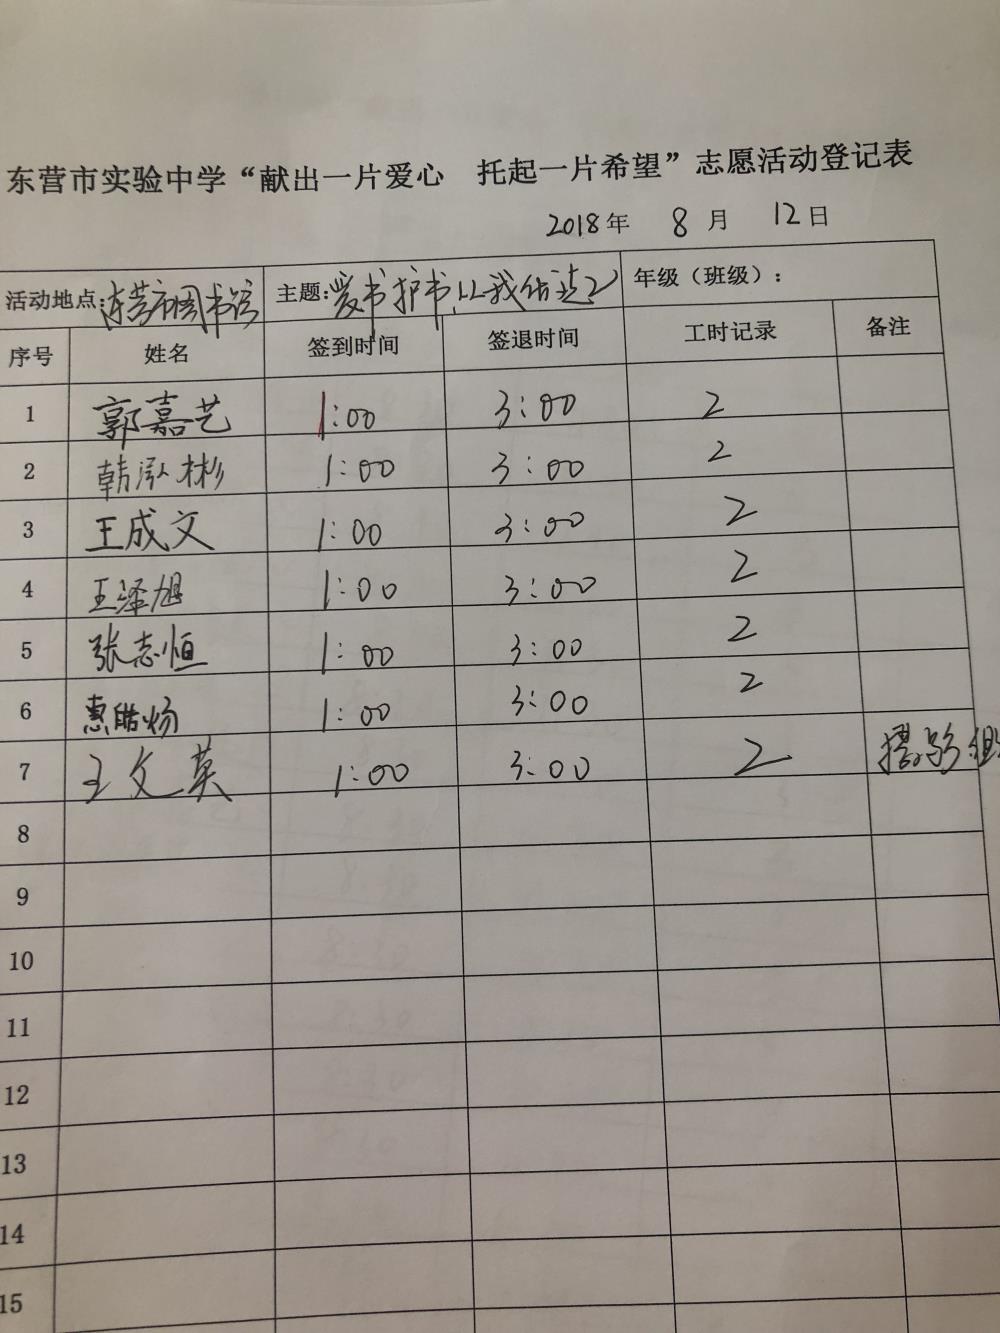 东营市实验中学“献出一片爱心　托起一片希望”志愿活动登记表
2018年 8月 12日
活动地点:东营市图书馆 主题:爱书护书,从我做起 年级（班级）:
序号 姓名 签到时间 签退时间 工时记录 备注
1 郭嘉艺 1:00 3:00 2
2 韩泓彬 1:00 3:00 2
3 王成文 1:00 3:00 2
4 王泽旭 1:00 3:00 2
5 张志恒 1:00 3:00 2
6 惠皓炀 1:00 3:00 2
7 王文英 1:00 3:00 2
8
9
10
11
12
13
14
15